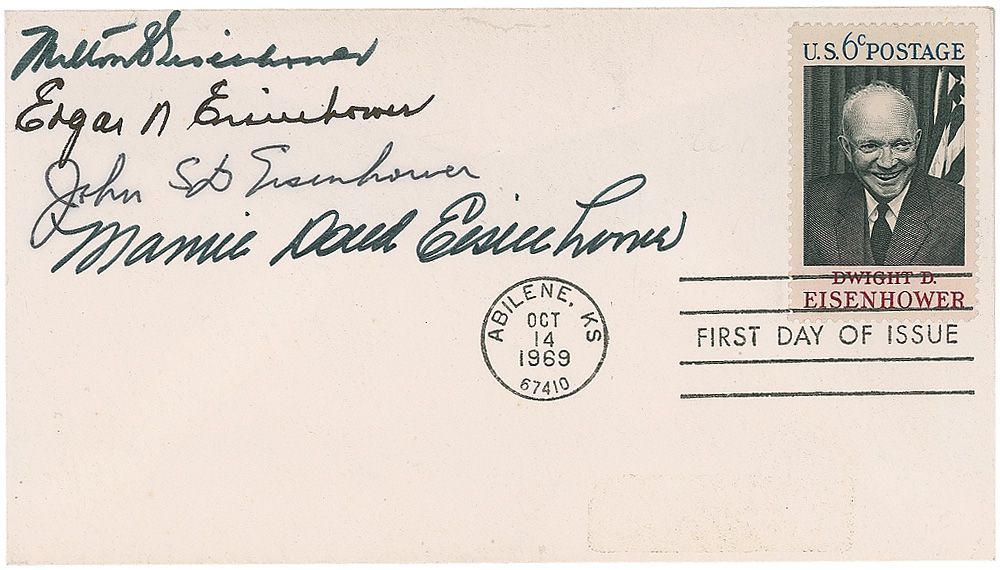 Milton S Eisenhower
Edgar N Eisenhower
John SD Eisenhower
Mamie Doud Eisenhower
U.S. 6c POSTAGE
DWIGHT D.
EISENHOWER
ABILENE, KS
OCT
14
1969
67410
FIRST DAY OF ISSUE